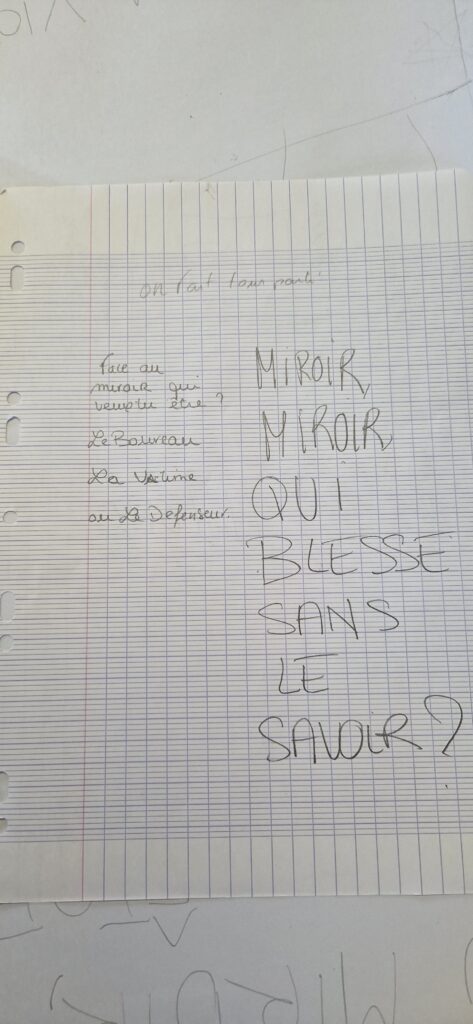 on fait tous parti
Face au
miroir qui
veux tu être ?
Le Bourreau
La Victime
ou Le Defenseur.
MIROIR,
MIROIR,
QUI
BLESSE
SANS
LE
SAVOIR ?
MIROIR